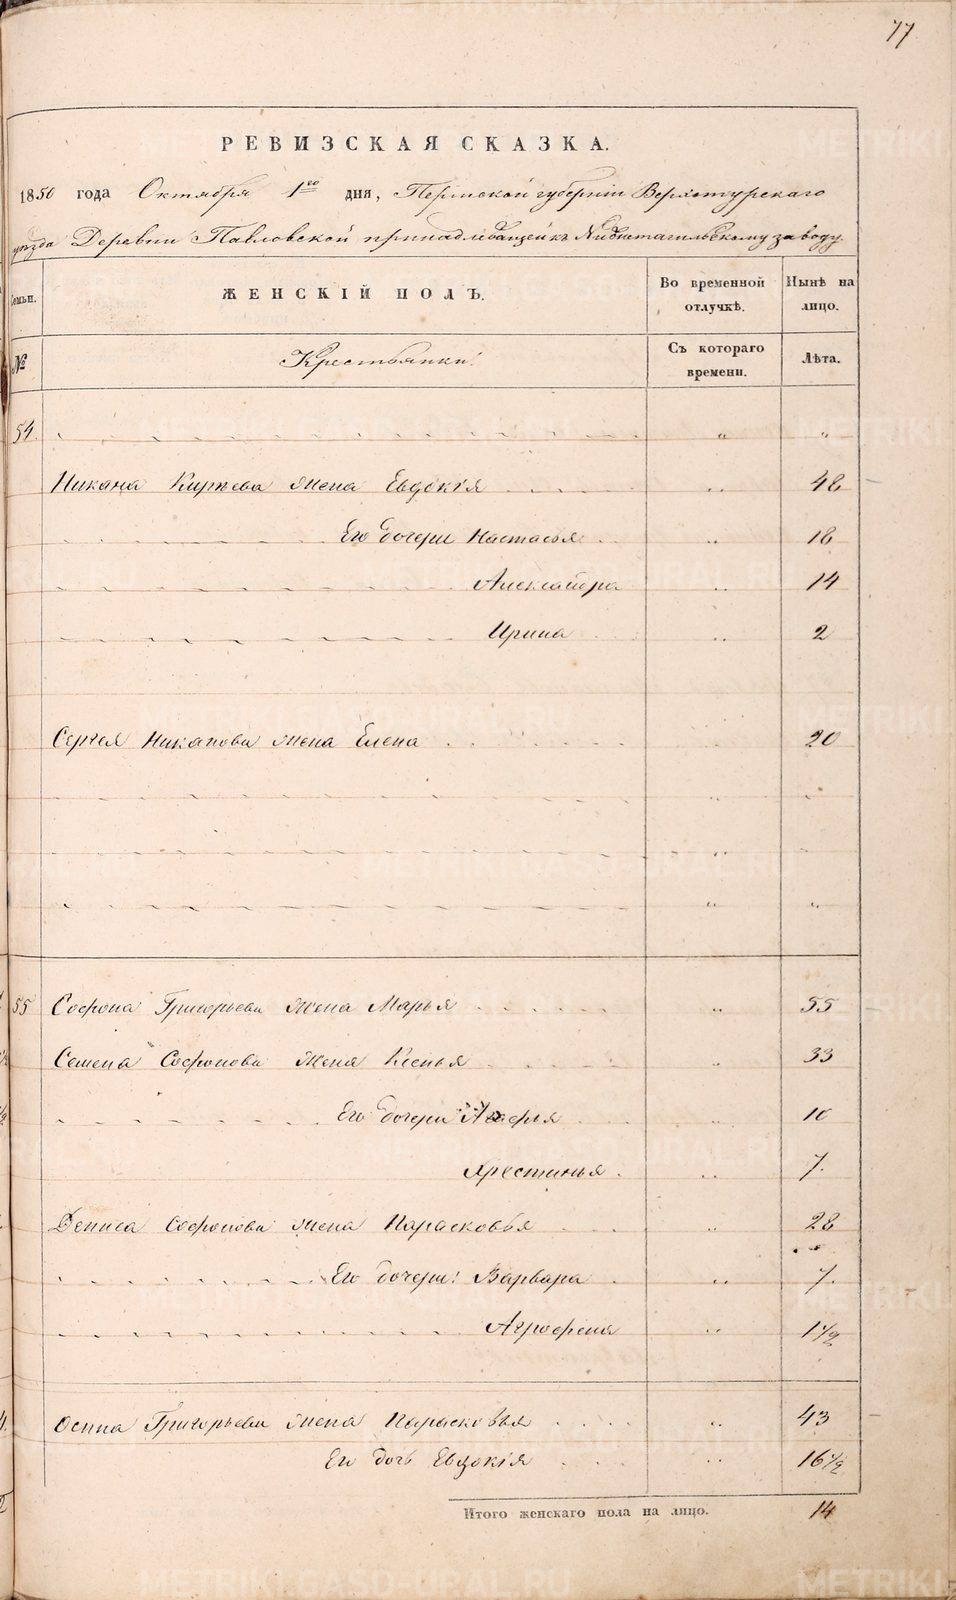 77
РЕВИЗСКАЯ СКАЗКА.
1850 года Октября 1го дня, Пермской губернiи Верхотурскаго
уезда Деревни Павловской принадлежащей къ Нижнетагильскому заводу
Семьи. ЖЕНСКIЙ ПОЛЪ. Во временной отлучкѣ. Нынѣ на лицо.
№ Крестьянки: Съ котораго времени. Лѣта.
54. " "
Никана Карпева жена Евдокiя 48
Его дочери Настасья 18
Александра 14
Ирина 2
Сергея Никанова жена Елена 20
55 Софона Григорьева жена Марья 55
Семена Софонова жена Ксенья 33
Его дочери Агафья 10
Хрестинья 7.
Дениса Софонова жена Парасковья 28
Его дочери: Варвара 7.
Агрофена 1 1/2
Осипа Григорьева жена Парасковья 43
Его дочь Евдокiя 16 1/2
Итого женскаго пола на лицо. 14
METRIKI.GASO-URAL.RU